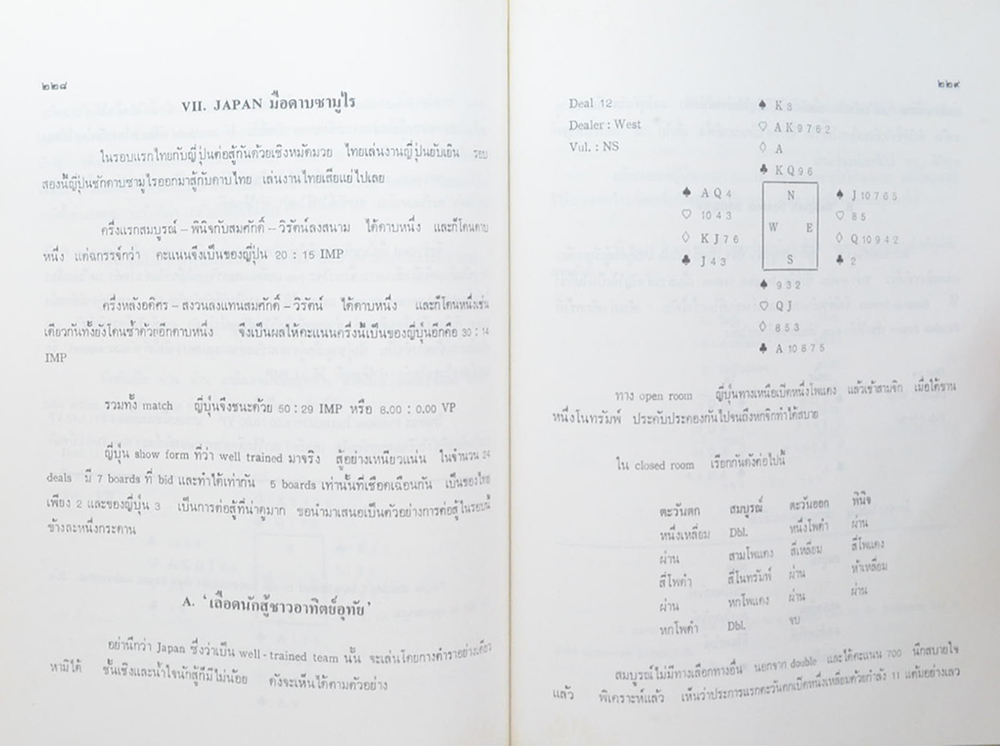 ๒๒๘
VII. JAPAN มือดาบซามูไร
ในรอบแรกไทยกับญี่ปุ่นต่อสู้กันด้วยเชิงหมัดมวย ไทยเล่นงานญี่ปุ่นยับเยิน รอบ
สองนี้ญี่ปุ่นชักดาบซามูไรออกมาสู้กับดาบไทย เล่นงานไทยเสียแย่ไปเลย
ครึ่งแรกสมบูรณ์ – พินิจกับสมศักดิ์ – วิรัตน์ลงสนาม ได้ดาบหนึ่ง และก็โดนดาบ
หนึ่ง แต่ฉกรรจ์กว่า คะแนนจึงเป็นของญี่ปุ่น 20 : 15 IMP
ครึ่งหลังอดิศร – สงวนลงแทนสมศักดิ์ – วิรัตน์ ได้ดาบหนึ่ง และก็โดนหนึ่งเช่น
เดียวกันทั้งยังโดนซ้ำด้วยอีกดาบหนึ่ง จึงเป็นผลให้คะแนนครึ่งนี้เป็นของญี่ปุ่นอีกคือ 30 : 14
IMP
รวมทั้ง match ญี่ปุ่นจึงชนะด้วย 50 : 29 IMP หรือ 8.00 : 0.00 VP
ญี่ปุ่น show form ที่ว่า well trained มาจริง สู้อย่างเหนียวแน่น ในจำนวน 24
deals มี 7 boards ที่ bid และทำได้เท่ากัน 5 boards เท่านั้นที่เชือดเฉือนกัน เป็นของไทย
เพียง 2 และของญี่ปุ่น 3 เป็นการต่อสู้ที่น่าดูมาก ขอนำมาเสนอเป็นตัวอย่างการต่อสู้ในรอบนี้
ข้างละหนึ่งกระดาน
A. 'เลือดนักสู้ชาวอาทิตย์อุทัย'
อย่านึกว่า Japan ซึ่งว่าเป็น well - trained team นั้น จะเล่นโดยทางตำราอย่างเดียว
หามิได้ ชั้นเชิงและน้ำใจนักสู้ก็มีไม่น้อย ดังจะเห็นได้ตามตัวอย่าง
๒๒๙
Deal 12
Dealer : West
Vul. : NS
♠ K 3
♡ A K 9 7 6 2
♢ A
♣ K Q 9 6
♠ A Q 4
♡ 10 4 3
♢ K J 7 6
♣ J 4 3
N
W E
S
♠ J 10 7 6 5
♡ 8 5
♢ Q 10 9 4 2
♣ 2
♠ 9 3 2
♡ Q J
♢ 8 5 3
♣ A 10 8 7 5
ทาง open room ญี่ปุ่นทางเหนือเปิดหนึ่งโพแดง แล้วเข้าสามจิก เมื่อได้ขาน
หนึ่งโนทรัมพ์ ประคับประคองกันไปจนถึงหกจิกทำได้สบาย
ใน closed room เรียกกันดังต่อไปนี้
ตะวันตก สมบูรณ์ ตะวันออก พินิจ
หนึ่งเหลี่ยม Dbl. หนึ่งโพดำ ผ่าน
ผ่าน สามโพแดง สี่เหลี่ยม สี่โพแดง
สี่โพดำ สี่โนทรัมพ์ ผ่าน ห้าเหลี่ยม
ผ่าน หกโพแดง ผ่าน ผ่าน
หกโพดำ Dbl. จบ
สมบูรณ์ไม่มีทางเลือกทางอื่น นอกจาก double และได้คะแนน 700 นึกสบายใจ
แล้ว พิเคราะห์แล้ว เห็นว่าประการแรกตะวันตกเปิดหนึ่งเหลี่ยมด้วยกำลัง 11 แต้มอย่างเลว